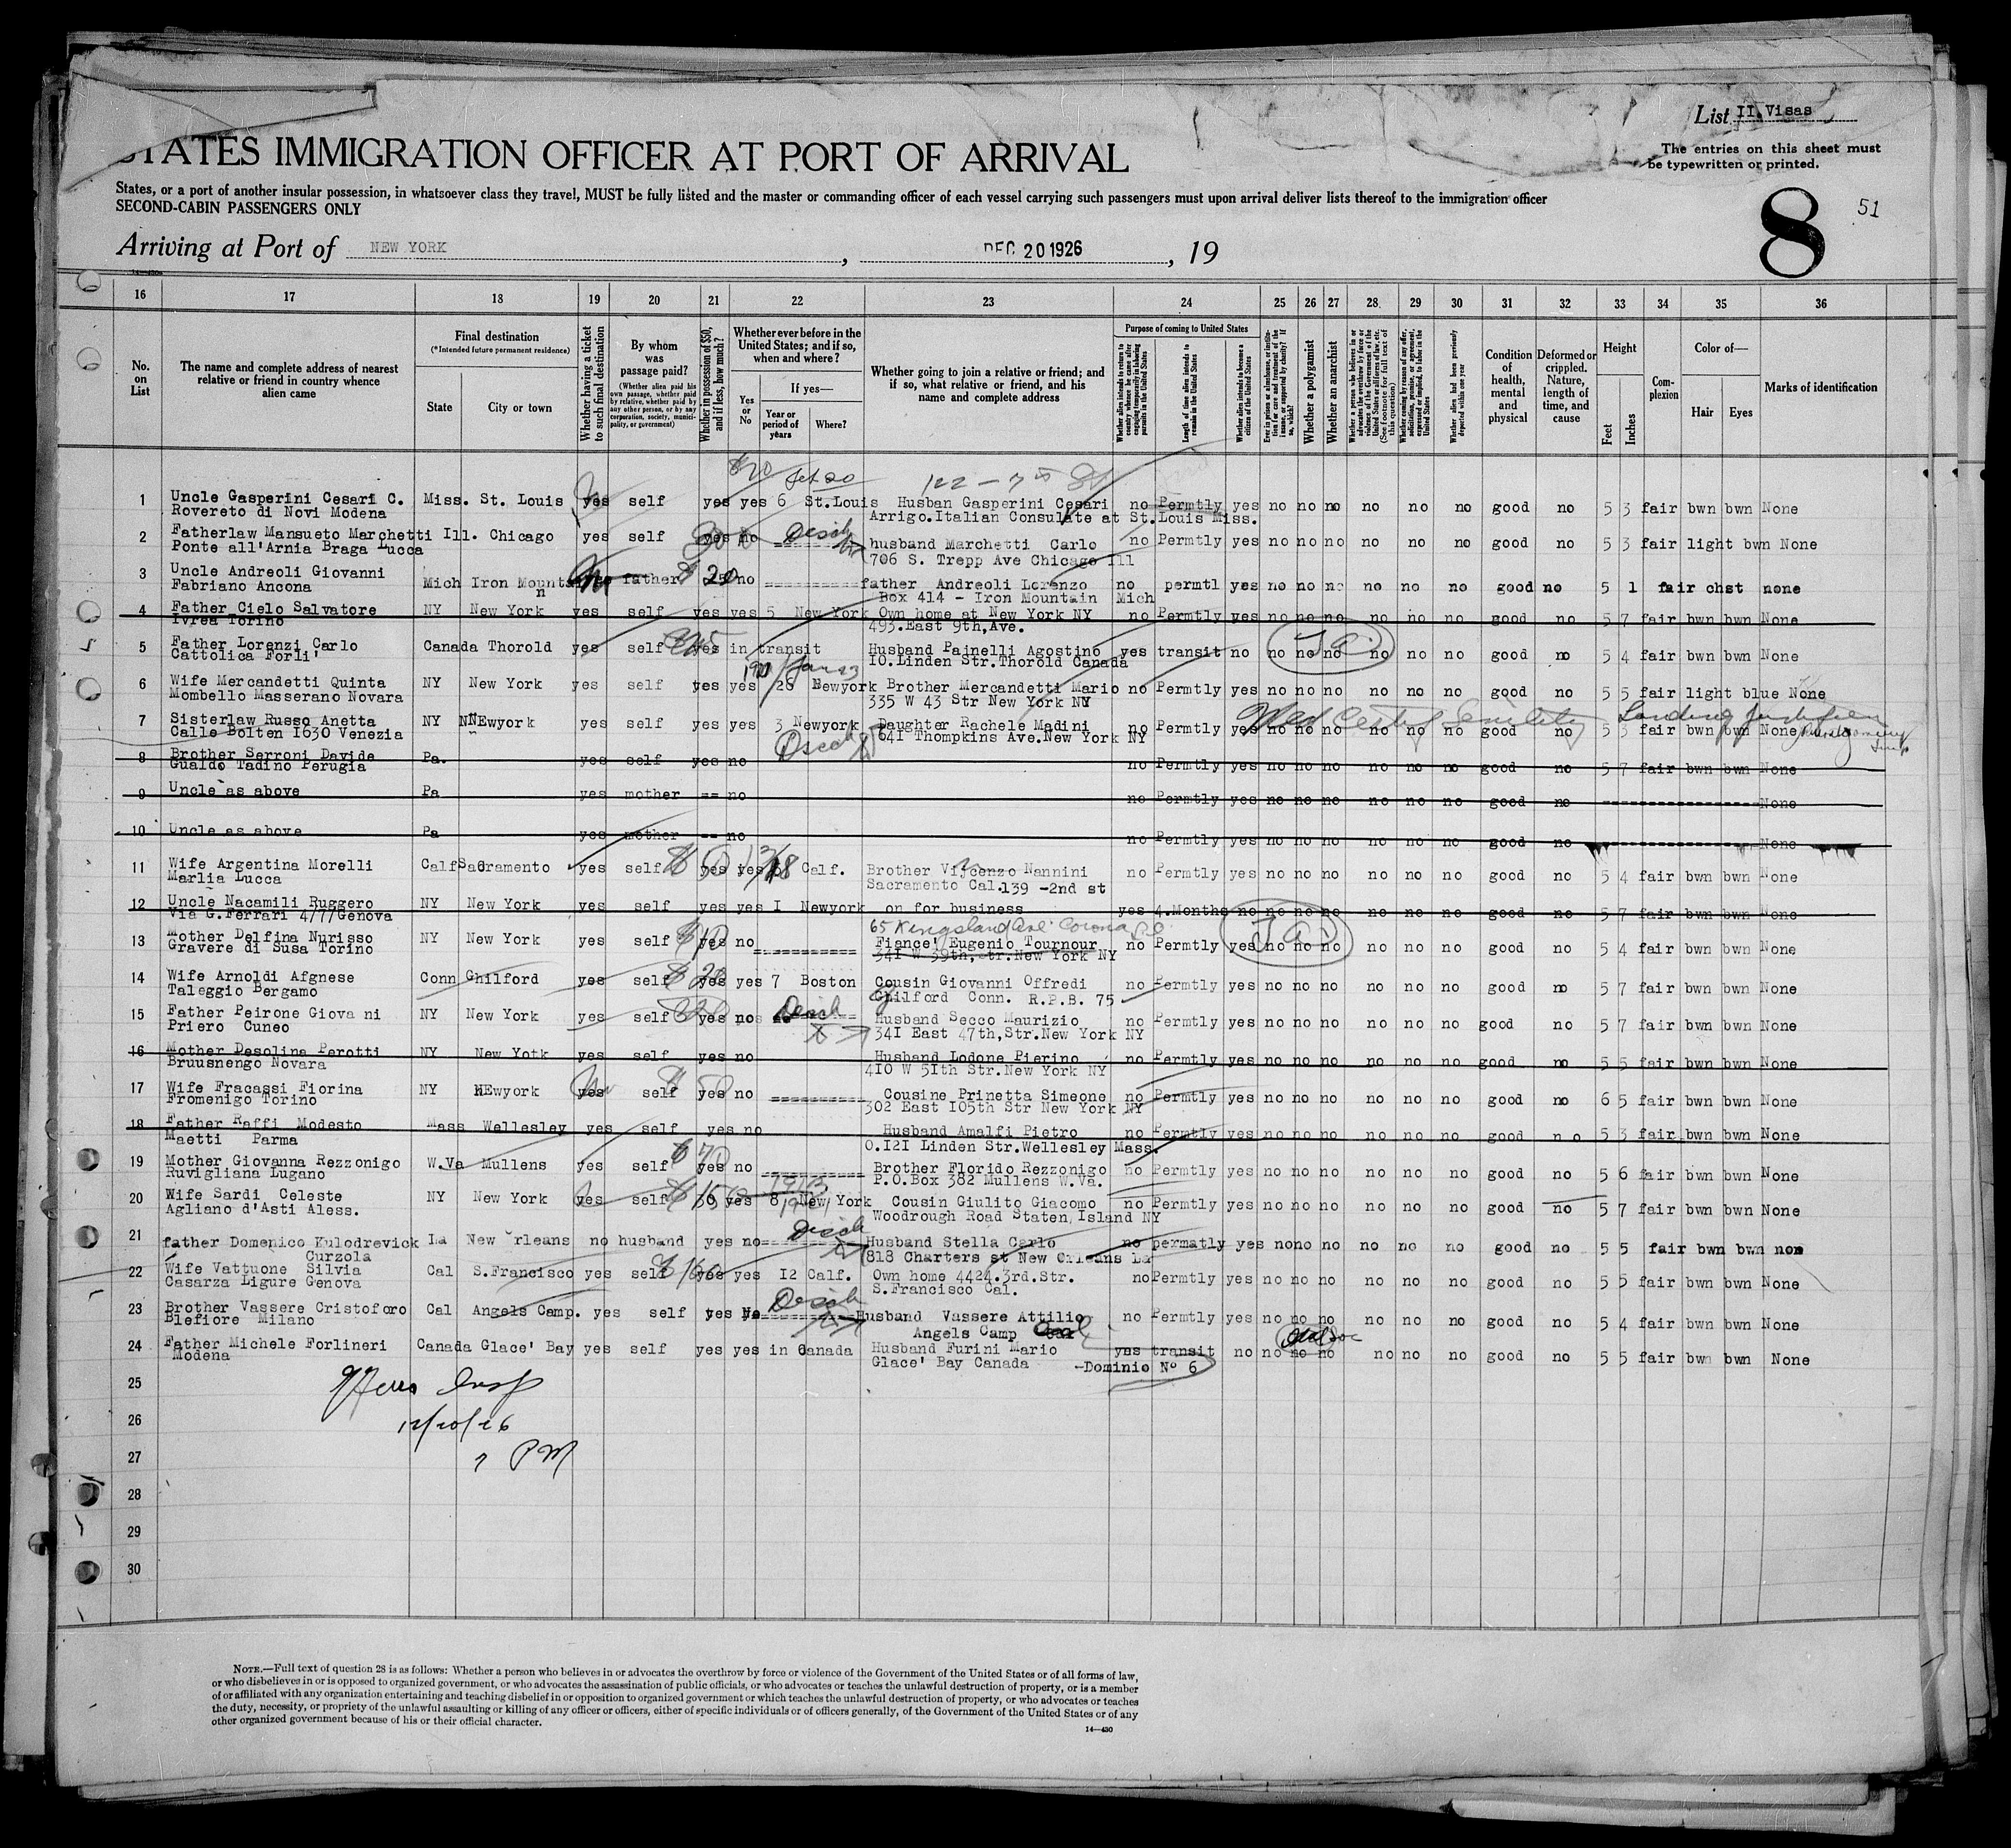 List II. Visas
STATES IMMIGRATION OFFICER AT PORT OF ARRIVAL
The entries on this sheet must
be typewritten or printed.
States, or a port of another insular possession, in whatsoever class they travel, MUST be fully listed and the master or commanding officer of each vessel carrying such passengers must upon arrival deliver lists thereof to the immigration officer
SECOND-CABIN PASSENGERS ONLY
8 51
Arriving at Port of NEW YORK, DEC 20 1926, 19
16 17 18 19 20 21 22 23 24 25 26 27 28. 29 30 31 32 33 34 35 36
No. on List
The name and complete address of nearest relative or friend in country whence alien came
Final destination
(*Intended future permanent residence)
State
City or town
Whether having a ticket to such final destination
By whom was passage paid?
(Whether alien paid his own passage, whether paid by relative, whether paid by any other person, or by any corporation, society, municipality, or government)
Whether in possession of $50, and if less, how much?
Whether ever before in the United States; and if so, when and where?
Yes or No
If yes—
Year or period of years
Where?
Whether going to join a relative or friend; and if so, what relative or friend, and his name and complete address
Purpose of coming to United States
Whether alien intends to return to country whence he came after engaging temporarily in laboring pursuits in the United States
Length of time alien intends to remain in the United States
Whether alien intends to become a citizen of the United States
Ever in prison or almshouse, or institution for care and treatment of the insane, or supported by charity? If so, which?
Whether a polygamist
Whether an anarchist
Whether a person who believes in or advocates the overthrow by force or violence of the Government of the United States or all forms of law, etc. (See footnote for full text of this question)
Whether coming by reason of any offer, solicitation, promise, or agreement, expressed or implied, to labor in the United States
Whether alien had been previously deported within one year
Condition of health, mental and physical
Deformed or crippled. Nature, length of time, and cause
Height
Feet
Inches
Complexion
Color of—
Hair
Eyes
Marks of identification
122 - 7th St
1 Uncle Gasperini Cesari C. Miss. St. Louis yes self yes yes 6 St.Louis Husban Gasperini Cesari no Permtly yes no no no no no no good no 5 3 fair bwn bwn None
Rovereto di Novi Modena Arrigo.Italian Consulate at St.Louis Miss.
2 Fatherlaw Mansueto Marchetti Ill. Chicago yes self yes no husband Marchetti Carlo no Permtly yes no no no no no no good no 5 3 fair light bwn None
Ponte all'Arnia Braga Lucca 706 S. Trepp Ave Chicago Ill
3 Uncle Andreoli Giovanni Mich Iron Mountain father no father Andreoli Lorenzo no permtl yes no no no no no no good no 5 1 fair chst none
Fabriano Ancona Box 414 - Iron Mountain Mich
4 Father Cielo Salvatore NY New York yes self yes yes 5 New York Own home at New York NY no Permtly yes no no no no no no good no 5 7 fair bwn bwn None
Ivrea Torino 493.East 9th,Ave.
5 Father Lorenzi Carlo Canada Thorold yes self yes in transit Husband Painelli Agostino yes transit no no no no no no no good no 5 4 fair bwn bwn None
Cattolica Forli' 10.Linden Str.Thorold Canada
6 Wife Mercandetti Quinta NY New York yes self yes yes 26 Newyork Brother Mercandetti Mario no Permtly yes no no no no no no good no 5 5 fair light blue None
Mombello Masserano Novara 335 W 43 Str New York NY
7 Sisterlaw Russo Anetta NY NNEwyork yes self yes yes 3 Newyork Daughter Rachele Madini no Permtly yes no no no no no no good no 5 3 fair bwn bwn None
Calle Bolten I630 Venezia 641 Thompkins Ave.New York NY
8 Brother Serroni Davide Pa. yes self yes no no Permtly yes no no no no no no good no 5 7 fair bwn bwn None
Gualdo Tadino Perugia
9 Uncle as above Pa yes mother -- no no Permtly yes no no no no no no good no None
10 Uncle as above Pa yes mother -- no no Permtly yes no no no no no no good no None
11 Wife Argentina Morelli Calf Sacramento yes self yes yes Calf. Brother Vincenzo Nannini no Permtly yes no no no no no no good no 5 4 fair bwn bwn None
Marlia Lucca Sacramento Cal.139 -2nd st
12 Uncle Nacamili Ruggero NY New York yes self yes yes I Newyork on for business yes 4.Months no no no no no no no good no 5 7 fair bwn bwn None
Via G.Ferrari 4/77Genova
65 Kingsland Ave Corona
13 Mother Delfina Nurisso NY New York yes self yes no Fiance' Eugenio Tournour no Permtly yes no no no no no no good no 5 4 fair bwn bwn None
Gravere di Susa Torino 34I W 39th,Str.New York NY
14 Wife Arnoldi Afgnese Conn Ghilford yes self yes yes 7 Boston Cousin Giovanni Offredi no Permtly yes no no no no no no good no 5 7 fair bwn bwn None
Taleggio Bergamo Ghilford Conn. R.P.B. 75
15 Father Peirone Giova ni NY New York yes self yes no Husband Secco Maurizio no Permtly yes no no no no no no good no 5 7 fair bwn bwn None
Priero Cuneo 34I East 47th,Str.New York NY
16 Mother Desolina Perotti NY New Yotk yes self yes no Husband Lodone Pierino no Permtly yes no no no no no no good no 5 5 fair bwn bwn None
Bruusnengo Novara 4I0 W 5Ith Str.New York NY
17 Wife Fracassi Fiorina NY NEwyork yes self yes no Cousine Prinetta Simeone no Permtly yes no no no no no no good no 6 5 fair bwn bwn None
Fromenigo Torino 302 East I05th Str New York NY
18 Father Raffi Modesto Mass Wellesley yes self yes no Husband Amalfi Pietro no Permtly yes no no no no no no good n o 5 3 fair bwn bwn None
Maetti Parma 0.I2I Linden Str.Wellesley Mass.
19 Mother Giovanna Rezzonigo W.Va Mullens yes self yes no Brother Florido Rezzonigo no Permtly yes no no no no no no good no 5 6 fair bwn bwn None
Ruvigliana Lugano P.O.Box 382 Mullens W.Va.
20 Wife Sardi Celeste NY New York yes self yes 8 New York Cousin Giulito Giacomo no Permtly yes no no no no no no good no 5 7 fair bwn bwn None
Agliano d'Asti Aless. Woodrough Road Staten Island NY
21 father Domenico Kulodrevick La New Orleans no husband yes no Husband Stella Carlo no permatly yes no no no no no no good no 5 5 fair bwn bwn non
Curzola 818 Charters st New Orleans La
22 Wife Vattuone Silvia Cal S.Francisco yes self yes yes I2 Calf. Own home 4424.3rd.Str. no Permtly yes no no no no no no good no 5 5 fair bwn bwn None
Casarza Ligure Genova S.Francisco Cal.
23 Brother Vassere Cristoforo Cal Angels Camp. yes self yes No Husband Vassere Attilio no Permtly yes no no no no no no good no 5 4 fair bwn bwn None
Blefiore Milano Angels Camp
24 Father Michele Forlineri Canada Glace' Bay yes self yes yes in Canada Husband Furini Mario yes transit no no no no no no no good no 5 5 fair bwn bwn None
Modena Glace' Bay Canada -Dominio Nº 6
25
26 12/20/26
27 7 PM
28
29
30
NOTE.—Full text of question 28 is as follows: Whether a person who believes in or advocates the overthrow by force or violence of the Government of the United States or of all forms of law,
or who disbelieves in or is opposed to organized government, or who advocates the assassination of public officials, or who advocates or teaches the unlawful destruction of property, or is a member
of or affiliated with any organization entertaining and teaching disbelief in or opposition to organized government or which teaches the unlawful destruction of property, or who advocates or teaches
the duty, necessity, or propriety of the unlawful assaulting or killing of any officer or officers, either of specific individuals or of officers generally, of the Government of the United States or of any
other organized government because of his or their official character.
14—430